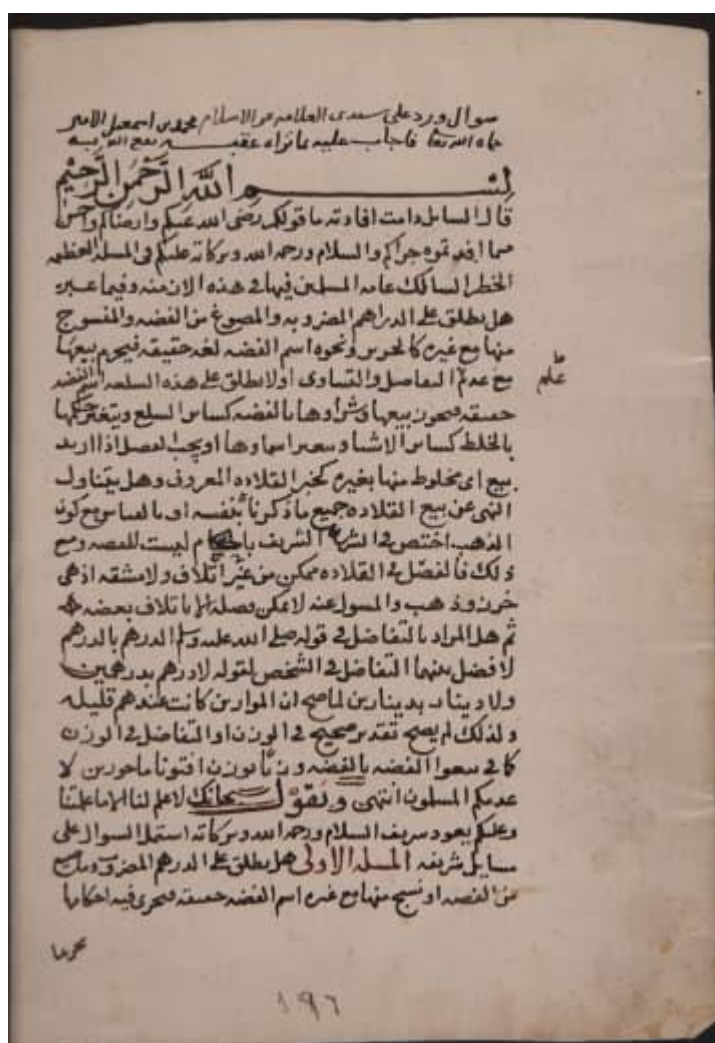 سوال ورد على سيدى العلامه عز الاسلام محمد بن اسمعيل الامير
حماه الله تعا فاجاب عليه بما تراه عقبه
بسم الله الرحمن الرحيم
قال السائل دامت افادته ما قولكم رضى الله عنكم وارضاكم واحسن
مما افدتموه جزاكم والسلام ورحمه الله وبركاته عليكم فى المسله العظيمه
الخطر السالك عامه المسلمين فيها فى هذه الازمنه وفيما عبر
هل يطلق على الدراهم المضروبه والمصوغ من الفضه والمنسوج
منها مع غيره كالخوس ونحوه اسم الفضه لغه حقيقه فيحرم بيعها
مع عدم التفاضل والتساوى اولا يطلق على هذه السلعه اسم الفضه
علم
حقيقه فيجوز بيعها وشراوها بالفضه كساير السلع ويتغير حكمها
بالخلط كساير الاشيا وتتغير اسماوها او يجب الفصل اذا اريد
بيع اى مخلوط منها بغيره كخبر القلاده المعروف وهل يتناول
النهى عن بيع القلاده جميع ما ذكرنا بنفسه او بالقياس مع كون
الذهب اختص فى الشرع الشريف باحكام ليست للفضه ومع
ذلك فالفصل فى القلاده ممكن من غير اتلاف ولا مشقه اذ هى
خرز وذهب والمسول عنه لا يمكن فصله الا باتلاف بعضه
ثم هل المراد بالتفاضل فى قوله صلى الله عليه وسلم الدرهم بالدرهم
لا فضل بينهما التفاضل فى الشخص لقوله لا درهم بدرهمين
ولا دينار بدينارين لما صح ان الموازين كانت عندهم قليله
ولذلك لم يصح تقدير صحيح فى الوزن او التفاضل فى الوزن
كما فى بيعوا الفضه بالفضه وزنا بوزن افتونا ماجورين لا
عدمكم المسلمون انتهى ونقول سبحانك لا علم لنا الا ما علمتنا
وعليكم يعود شريف السلام ورحمه الله وبركاته اشتمل السوال على
مسايل شريفه المسله الاولى هل يطلق على الدرهم المضروب وما صيغ
من الفضه او نسج منها مع غيره اسم الفضه حقيقه فيجرى فيه احكامها
١٩٦